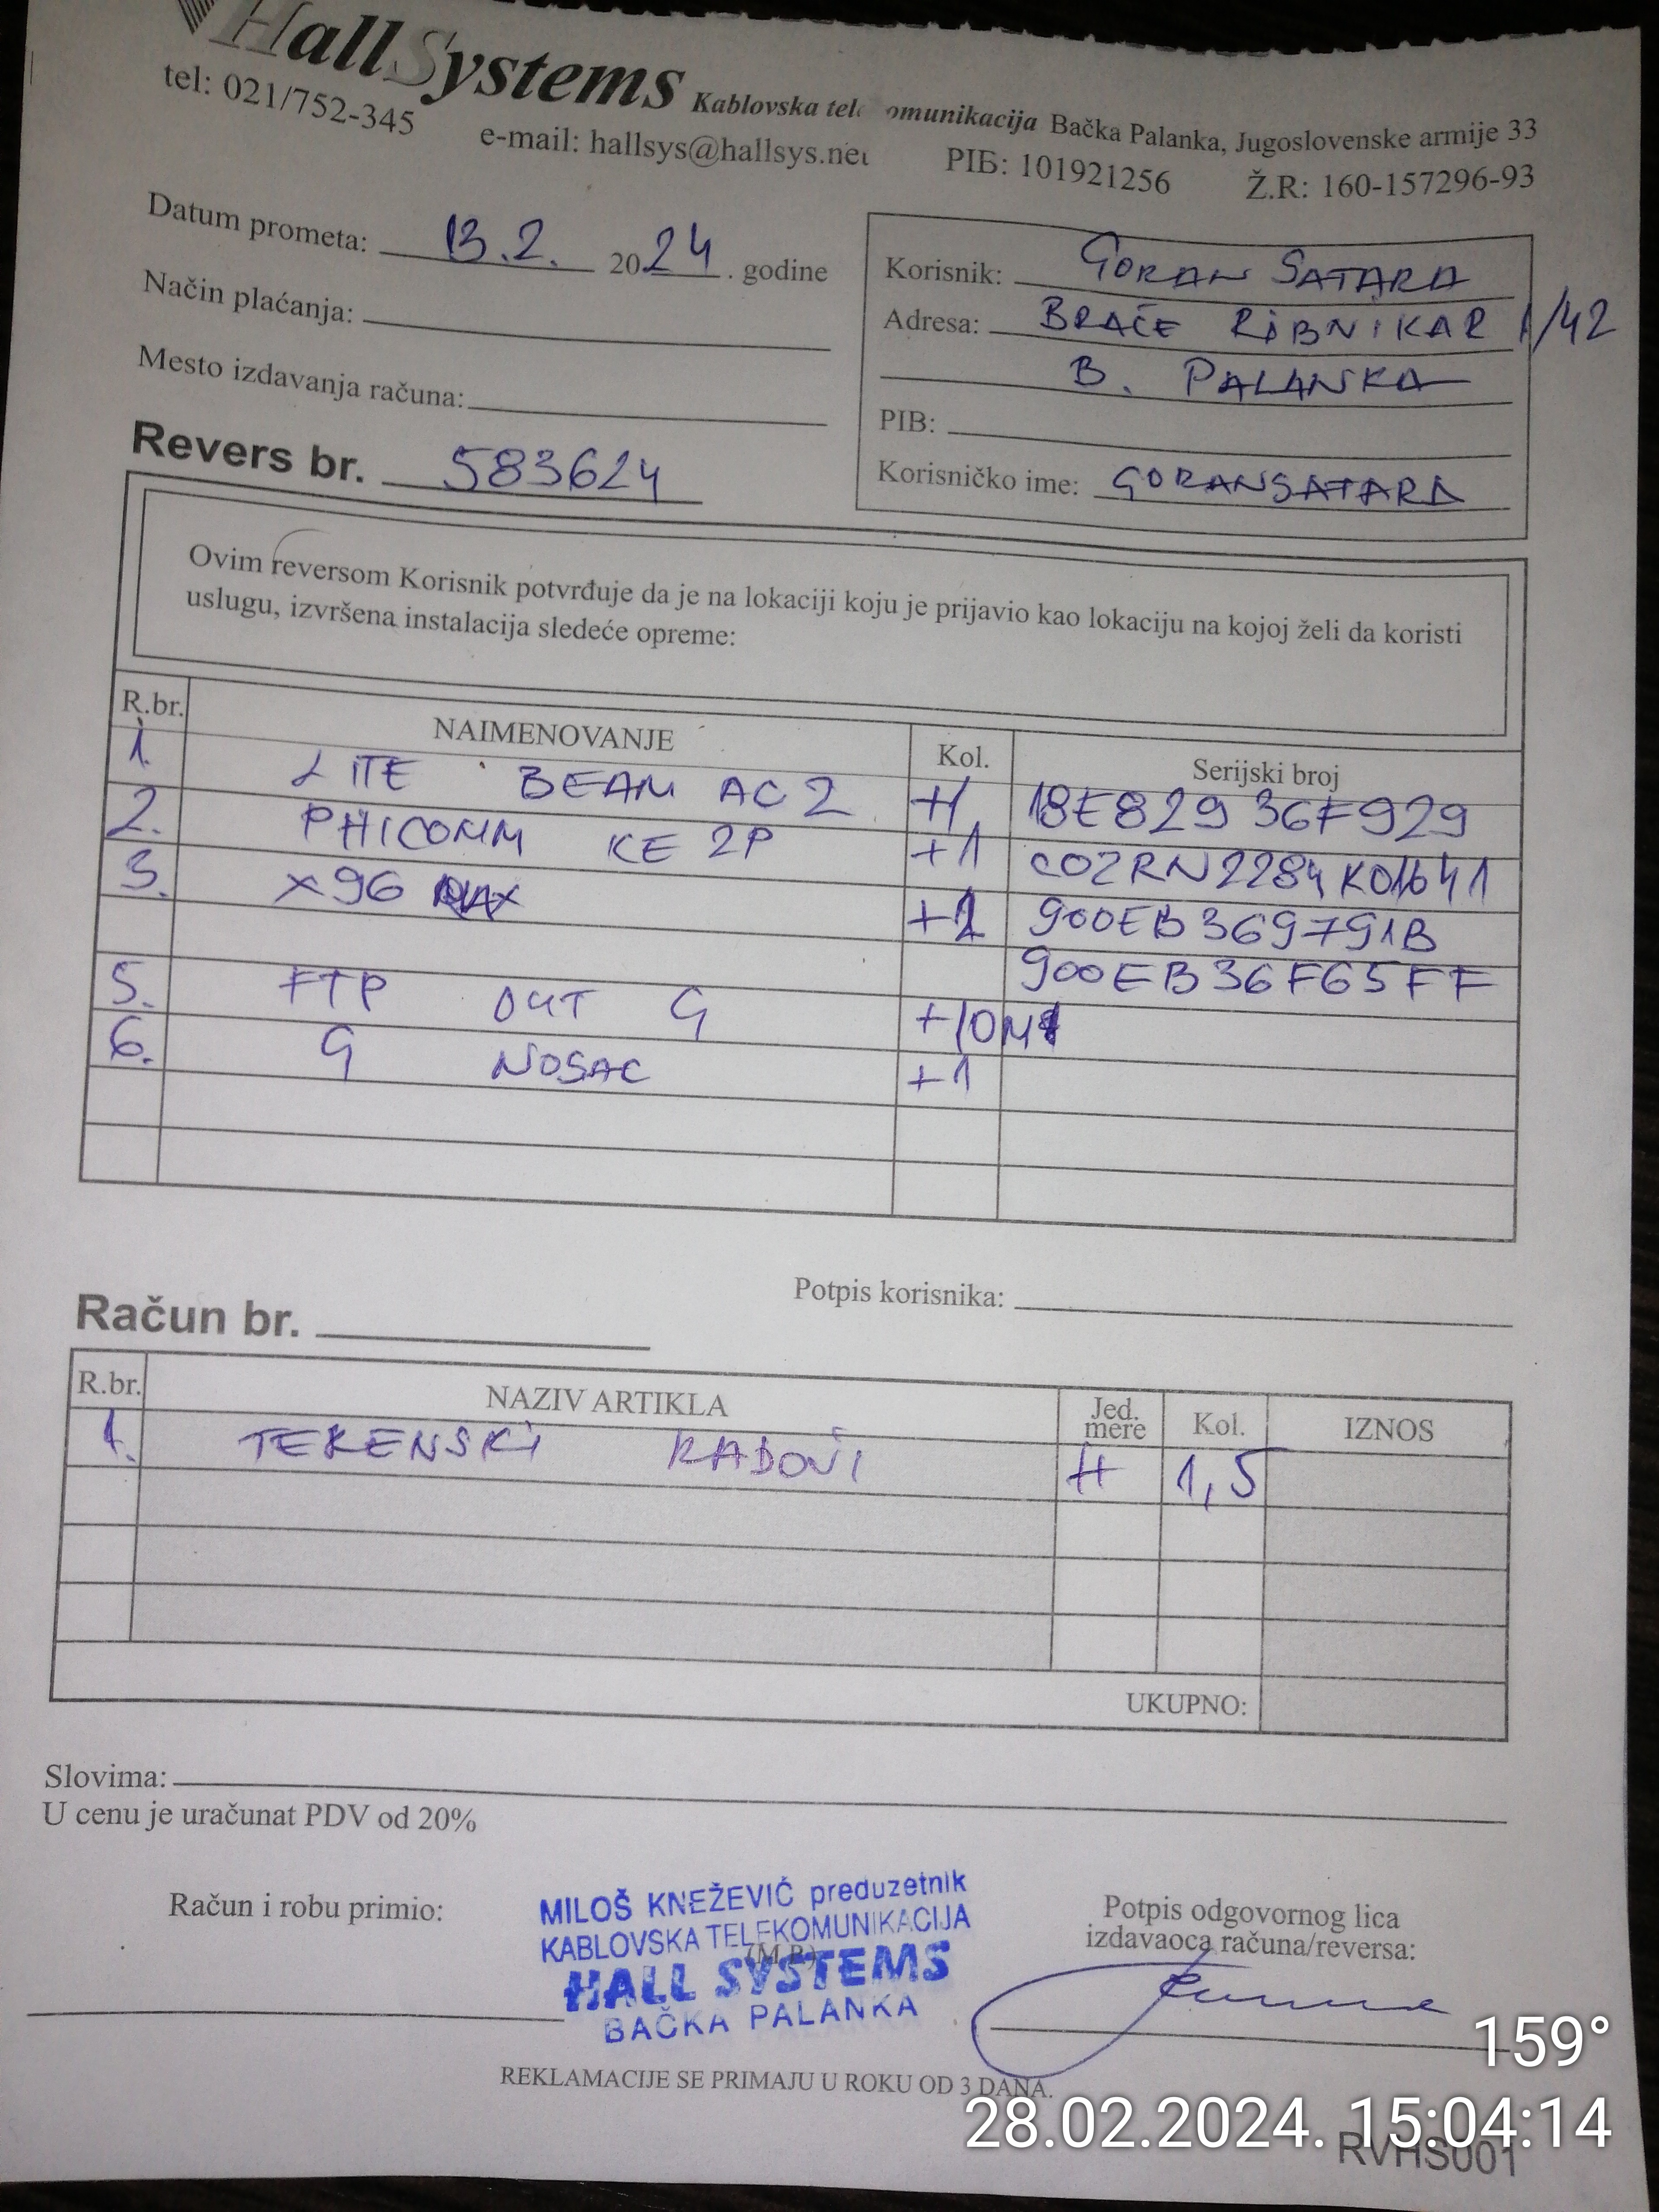 HallSystems Kablovska tele omunikacija Bačka Palanka, Jugoslovenske armije 33
tel: 021/752-345 e-mail: hallsys@hallsys.net PIB: 101921256 Ž.R: 160-157296-93
Datum prometa: 13.2. 2024. godine
Način plaćanja:
Mesto izdavanja računa:
Korisnik: GORAN SATARA
Adresa: BRAĆE RIBNIKAR 1/42
B. PALANKA
PIB:
Korisničko ime: GORANSATARA
Revers br. 583624
Ovim reversom Korisnik potvrđuje da je na lokaciji koju je prijavio kao lokaciju na kojoj želi da koristi
uslugu, izvršena instalacija sledeće opreme:
R.br. NAIMENOVANJE Kol. Serijski broj
1. LITE BEAM AC 2 +1 18E829 36F929
2. PHICOMM KE 2P +1 COZRN2284K01641
3. X96 MAX +2 900EB369791B
900EB36F65FF
5. FTP OUT G +10M
6. G NOSAC +1
Potpis korisnika:
Račun br.
R.br. NAZIV ARTIKLA Jed. mere Kol. IZNOS
1. TERENSKI RADOVI H 1,5
UKUPNO:
Slovima:
U cenu je uračunat PDV od 20%
Račun i robu primio:
MILOŠ KNEŽEVIĆ preduzetnik
KABLOVSKA TELEKOMUNIKACIJA
(M.P.)
HALL SYSTEMS
BAČKA PALANKA
Potpis odgovornog lica
izdavaoca računa/reversa:
REKLAMACIJE SE PRIMAJU U ROKU OD 3 DANA.
159°
28.02.2024. 15:04:14
RVHS001